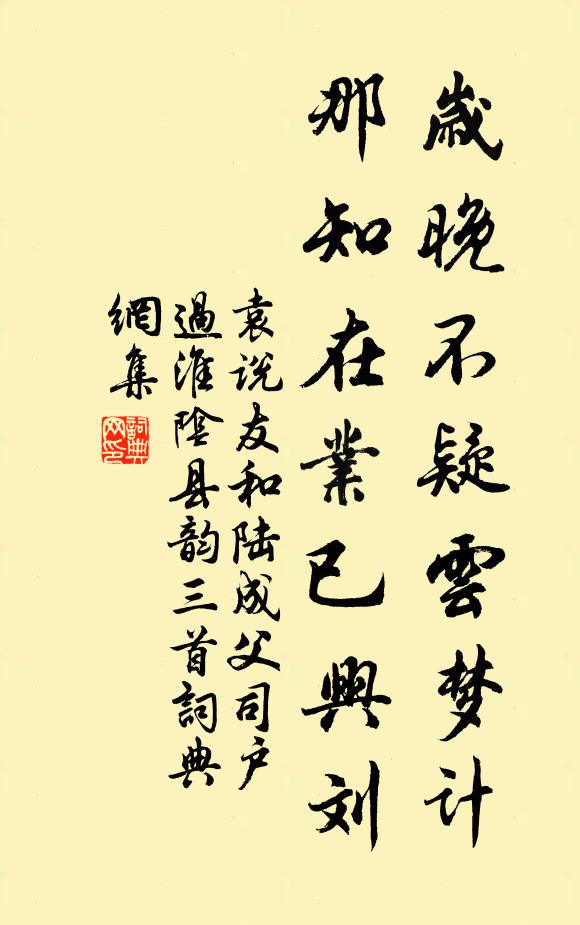 歲晚不疑雲梦计
那知在業已興刘
袁说友和陆成父司户
過淮陰县韵三首詞典
網集
詞典
网印